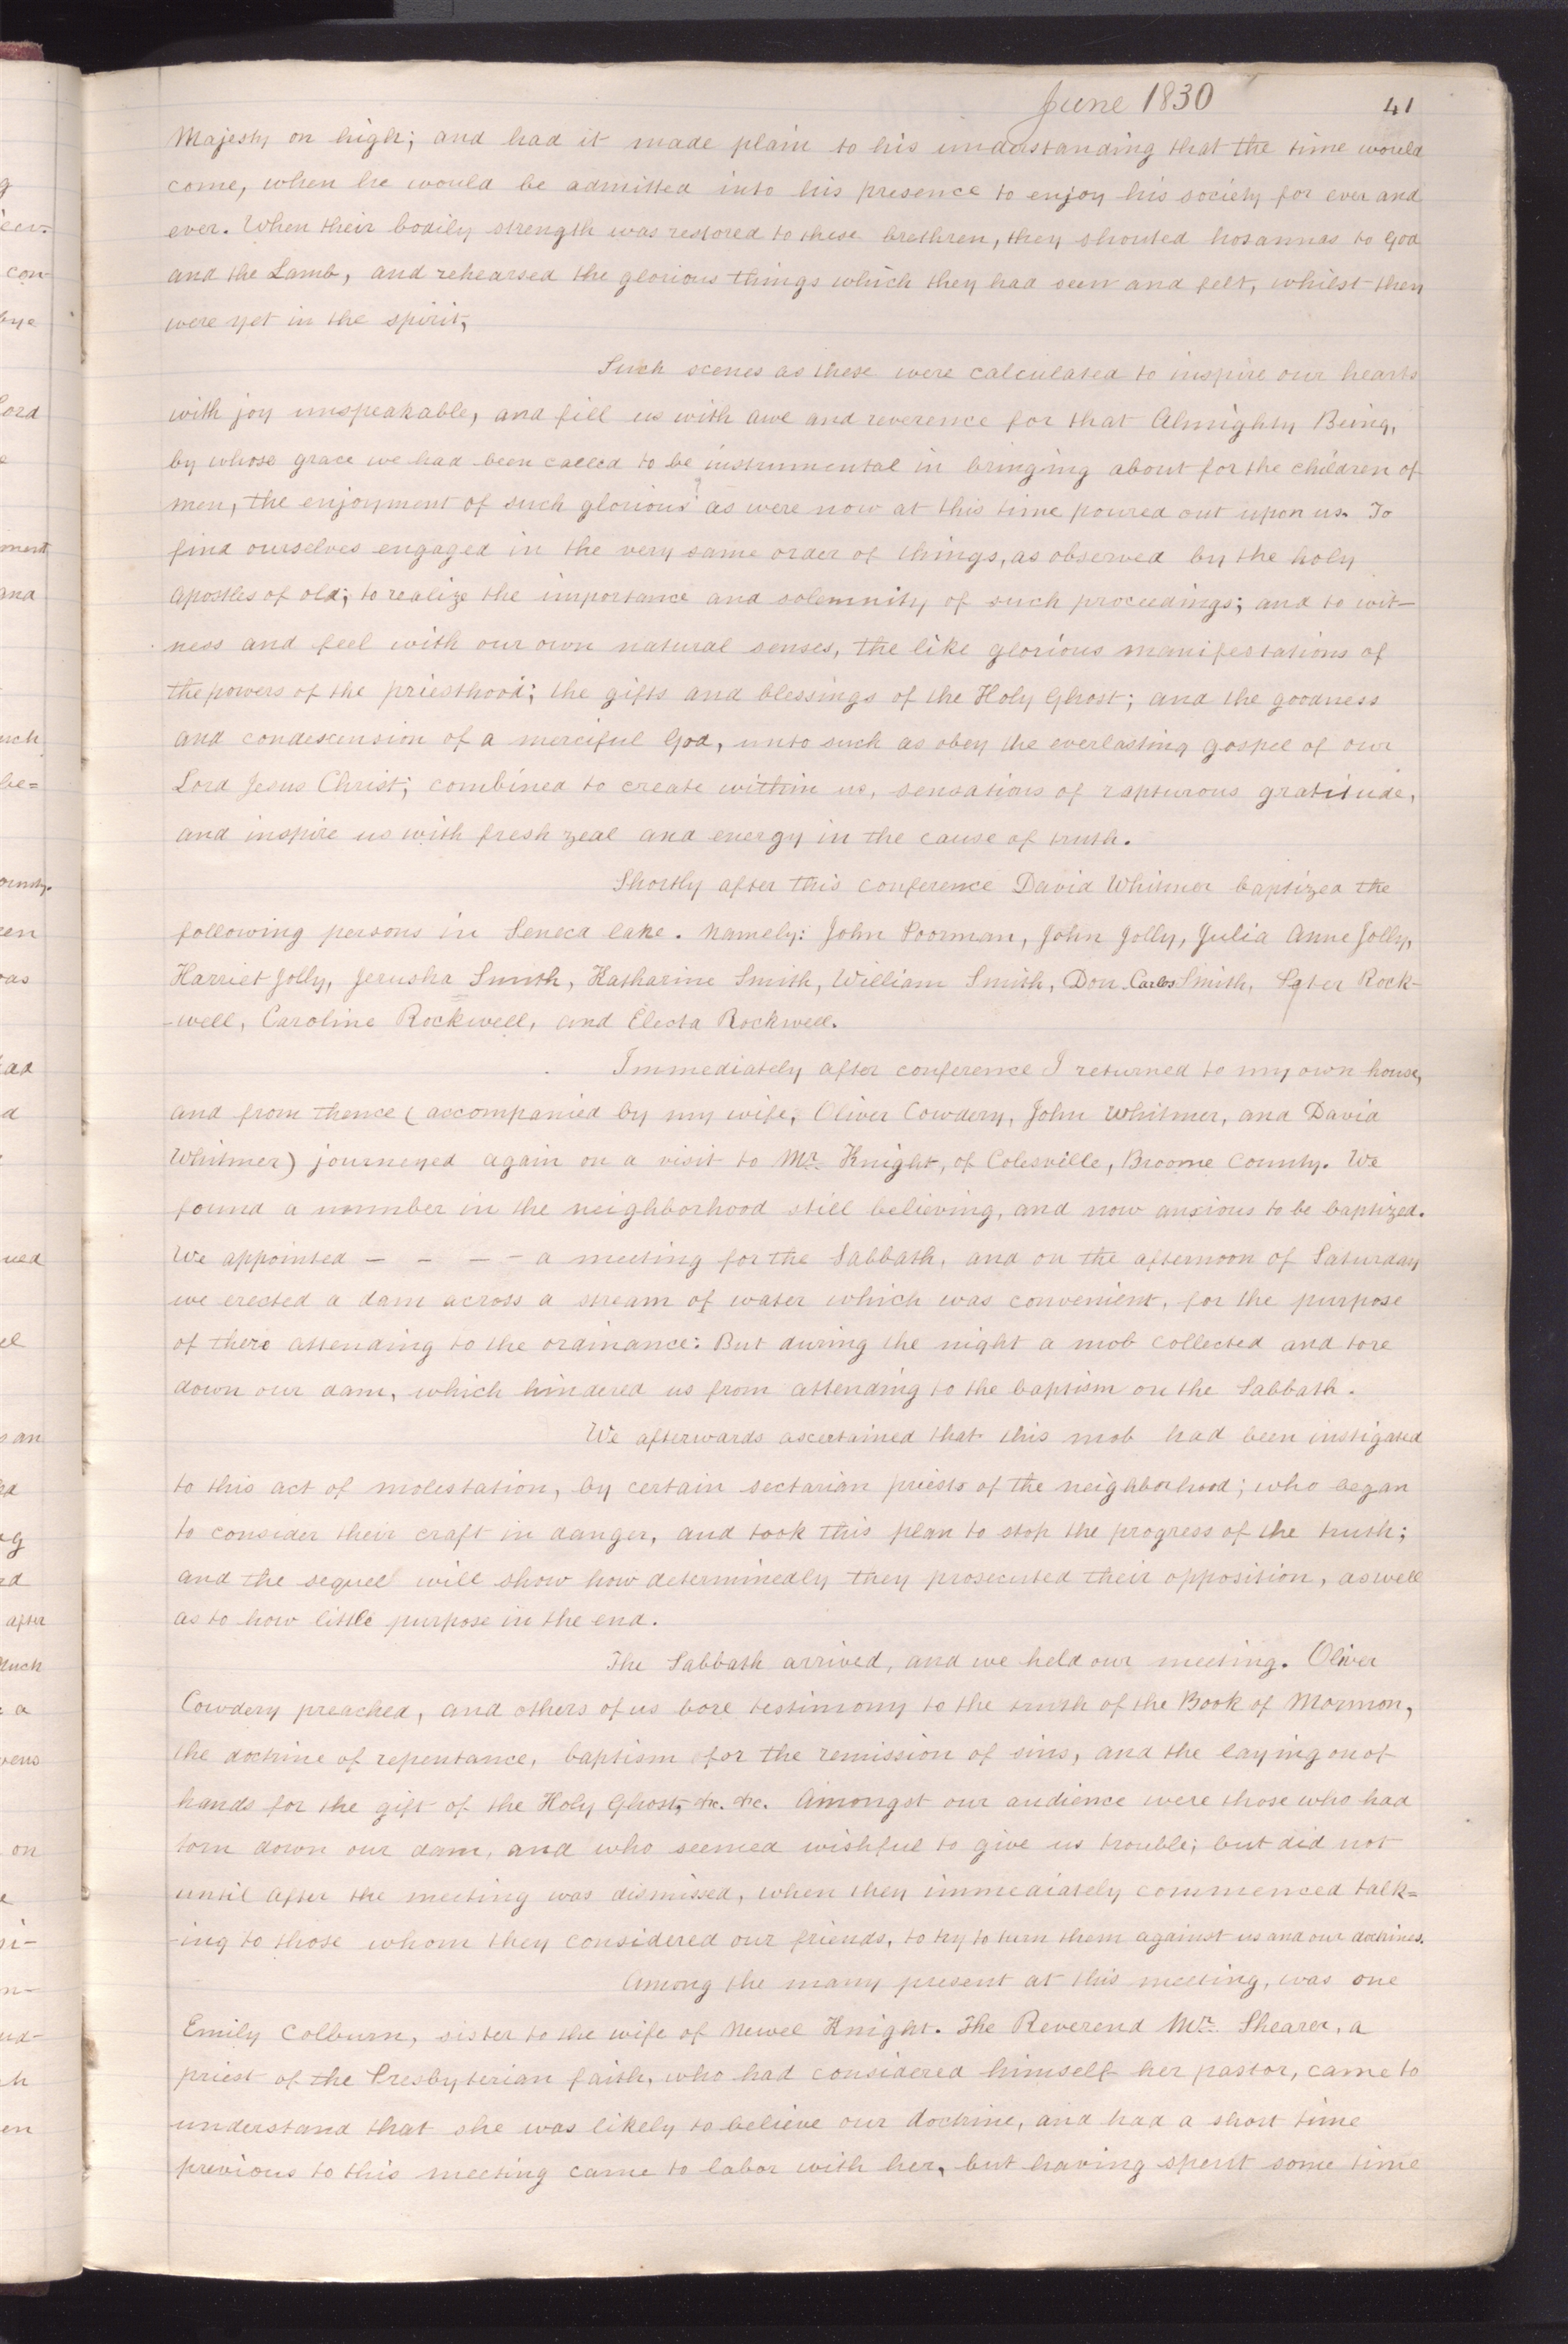 June 1830
41
Majesty on high; and had it made plain to his understanding that the time would
come, when he would be admitted into his presence to enjoy his society for ever and
ever. When their bodily strength was restored to these brethren, they shouted hosannas to God
and the Lamb, and rehearsed the glorious things which they had seen and felt, whilst they
were yet in the spirit,
Such scenes as these were calculated to inspire our hearts
with joy unspeakable, and fill us with awe and reverence for that Almighty Being,
by whose grace we had been called to be instrumental in bringing about for the children of
men, the enjoyment of such glorious as were now at this time poured out upon us. To
find ourselves engaged in the very same order of things, as observed by the holy
apostles of old; to realize the importance and solemnity of such proceedings; and to wit-
ness and feel with our own natural senses, the like glorious manifestations of
the powers of the priesthood; the gifts and blessings of the Holy Ghost; and the goodness
and condescension of a merciful God, unto such as obey the everlasting gospel of our
Lord Jesus Christ; combined to create within us, sensations of rapturous gratitude,
and inspire us with fresh zeal and energy in the cause of truth.
Shortly after this conference David Whitmer baptized the
following persons in Seneca lake. Namely: John Poorman, John Jolly, Julia Anne Jolly,
Harriet Jolly, Jerusha Smith, Katharine Smith, William Smith, Don Carlos Smith, Rock-
-well, Caroline Rockwell, and Electa Rockwell.
Immediately after conference I returned to my own house,
and from thence (accompanied by my wife, Oliver Cowdery, John Whitmer, and David
Whitmer) journeyed again on a visit to Mr. Knight, of Colesville, Broome County. We
found a nnumber in the neighborhood still believing, and now anxious to be baptized.
We appointed – – – – a meeting for the Sabbath, and on the afternoon of Saturday
we erected a dam across a stream of water which was convenient, for the purpose
of there attending to the ordinance: But during the night a mob collected and tore
down our dam, which hindered us from attending to the baptism on the Sabbath.
We afterwards ascertained that this mob had been instigated
to this act of molestation, by certain sectarian priests of the neighborhood; who began
to consider their craft in danger, and took this plan to stop the progress of the truth;
and the sequel will show how determinedly they prosecuted their opposition, as well
as to how little purpose in the end.
The Sabbath arrived, and we held our meeting. Oliver
Cowdery preached, and others of us bore testimony to the truth of the Book of Mormon,
the doctrine of repentance, baptism for the remission of sins, and the laying on of
hands for the gift of the Holy Ghost, &c. &c. Amongst our audience were those who had
torn down our dam, and who seemed wishful to give us trouble; but did not
until after the meeting was dismissed, when they immediately commenced talk=
-ing to those whom they considered our friends, to try to turn them against us and our doctrines.
Among the many present at this meeting, was one
Emily Colburn, sister to the wife of Newel Knight. The Reverend Mr. Shearer, a
priest of the Presbyterian faith, who had considered himself her pastor, came to
understand that she was likely to believe our doctrine, and had a short time
previous to this meeting came to labor with her, but having spent some time